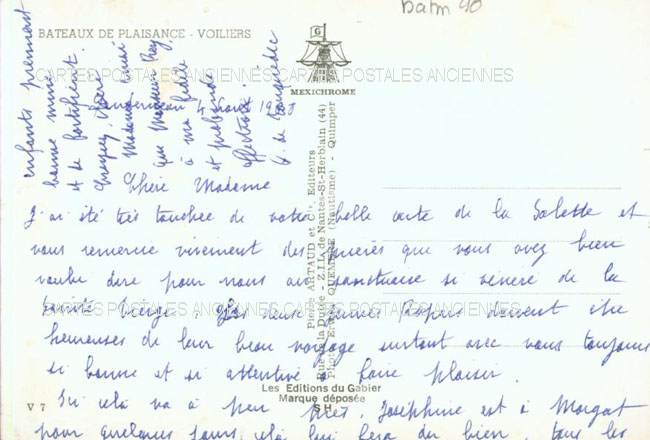 batm 90
BATEAUX DE PLAISANCE - VOILIERS
G
MEXICHROME
CARTES POSTALES ANCIENNES CARTES POSTALES ANCIENNES
Landerneau 4 août
Chère Madame
J'ai été très touchée de votre belle carte de la Salette et
vous remercie vivement des prières que vous avez bien
voulu dire pour nous au sanctuaire si vénéré de la
Sainte Vierge. Les deux jeunes doivent être
heureuses de leur beau voyage surtout avec vous toujours
si bonne et si attentive à faire plaisir.
Ici cela va à peu près, Joséphine est à Morgat
pour quelques jours, cela lui fera du bien, tous les
enfants prennent
bonne mine
et se fortifient.
Croyez, chère
Madame, ainsi
que Monsieur
à ma fidèle
et profonde
affection.
G. de
CARTES POSTALES ANCIENNES CARTES POSTALES ANCIENNES
Pierre ARTAUD et Cie Editeurs
Rue de la Durée - Z.I.L. de Nantes-St-Herblain (44)
QUEMERE (Nautisme) - Quimper
Les Editions du Gabier
Marque déposée
S H
V 7